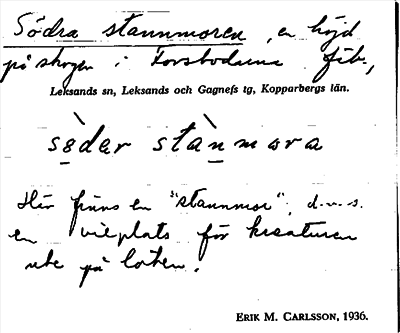 Södra stannmoren, en höjd
på skogen i Forsbodarna fäb.,
Leksands sn, Leksands och Gagnefs tg, Kopparbergs län.
södər stànmora
Här finns en "stannmor", d.v.s.
en vilplats för kreaturen
ute på loten.
ERIK M. CARLSSON, 1936.